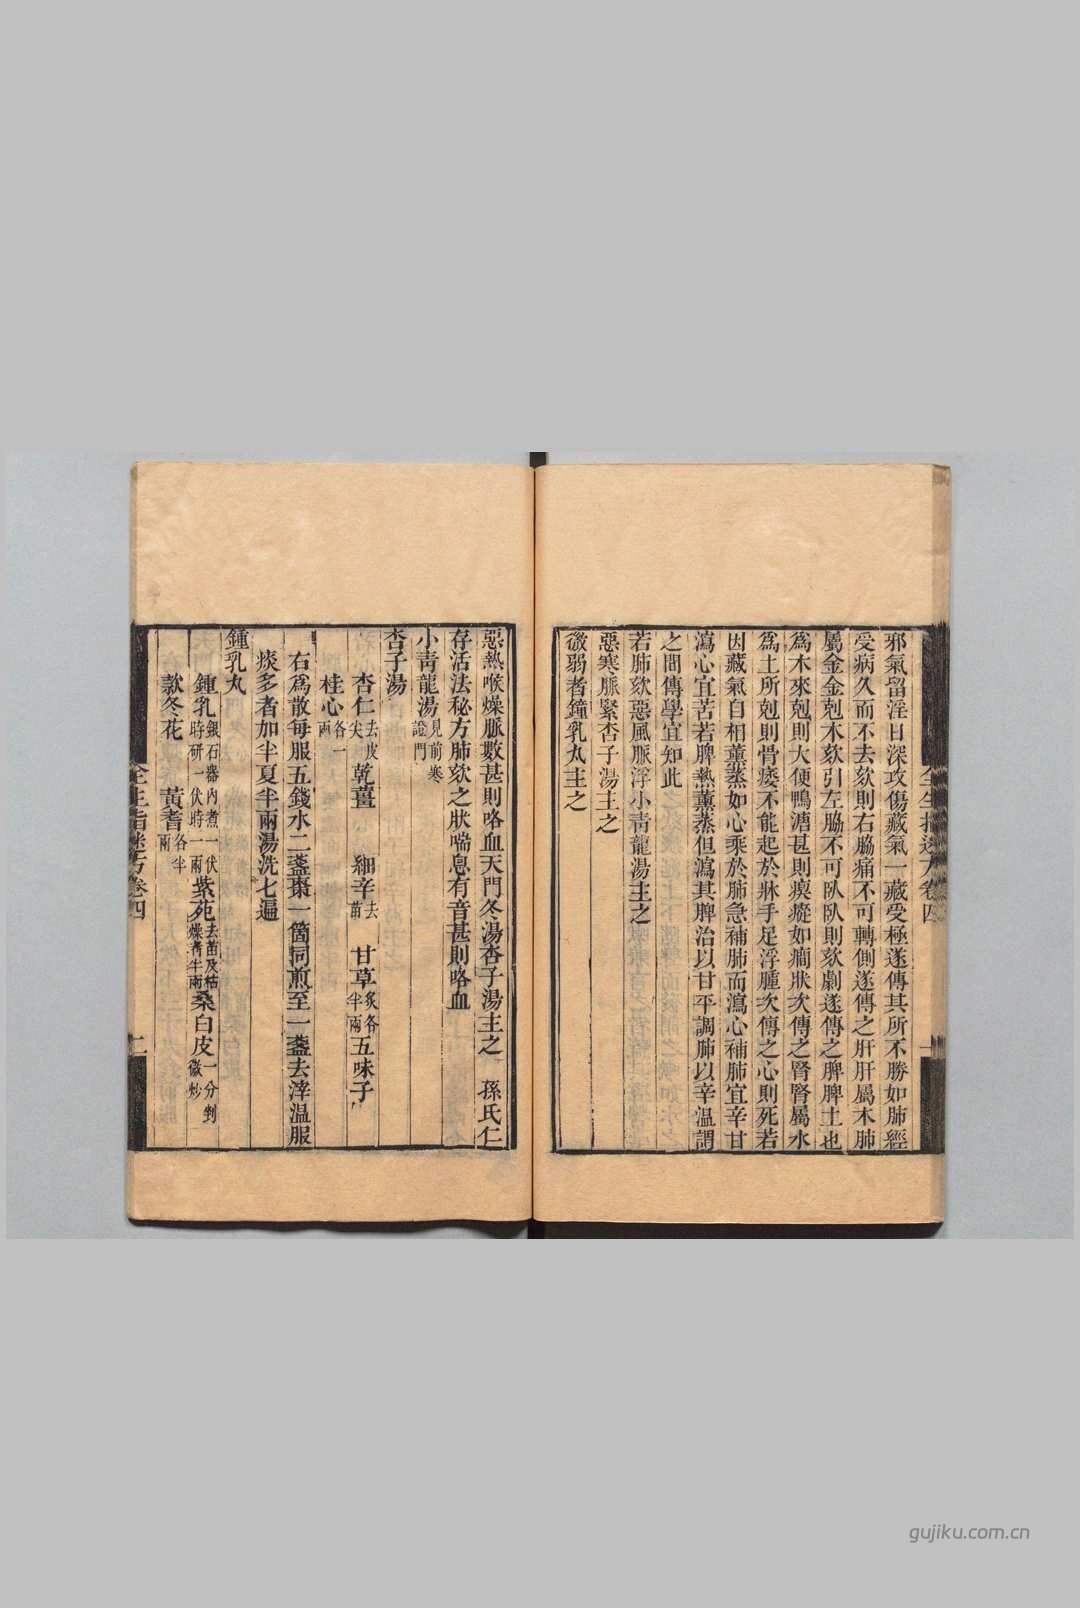 邪氣留淫日深攻傷藏氣一藏受極遂傳其所不勝如肺經
受病久而不去欬則右脇痛不可轉側遂傳之肝肝屬木肺
屬金金剋木欬引左脇不可臥臥則欬劇遂傳之脾脾土也
為木來剋則大便鴨溏甚則瘈瘲如癎狀次傳之腎腎屬水
為土所剋則骨痿不能起於牀手足浮腫次傳之心則死若
因藏氣自相薰蒸如心乘於肺急補肺而瀉心補肺宜辛甘
瀉心宜苦若脾熱薰蒸但瀉其脾治以甘平調肺以辛溫謂
之間傳學宜知此
若肺欬惡風脈浮小青龍湯主之
惡寒脈緊杏子湯主之
微弱者鐘乳丸主之
全生指迷方卷四
一
惡熱喉燥脈數甚則咯血天門冬湯杏子湯主之 孫氏仁
存活法秘方肺欬之狀喘息有音甚則咯血
小青龍湯見前寒證門
杏子湯
杏仁去皮尖 乾薑 細辛去苗 甘草炙各半兩 五味子
桂心各一兩
右為散每服五錢水二盞棗一箇同煎至一盞去滓溫服
痰多者加半夏半兩湯洗七遍
鍾乳丸
鍾乳銀石器內煮一伏時研一伏時一兩 紫苑去苗及枯燥者半兩 桑白皮一分剉微炒
款冬花 黃耆各半兩
全生指迷方卷四
二
gujiku.com.cn